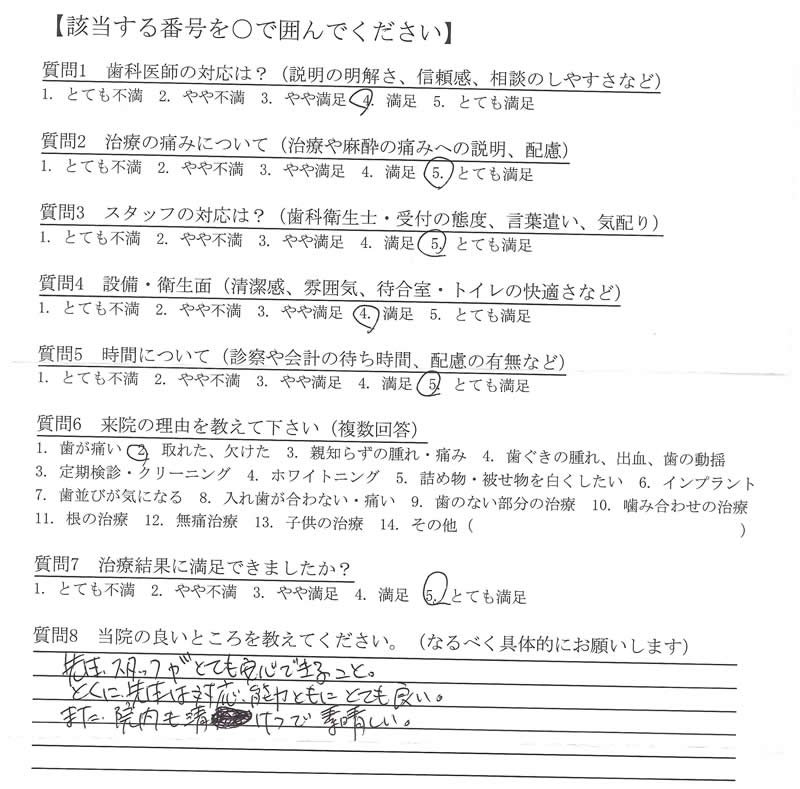 【該当する番号を○で囲んでください】
質問1 歯科医師の対応は？（説明の明解さ、信頼感、相談のしやすさなど）
1. とても不満 2. やや不満 3. やや満足 4. 満足 5. とても満足
質問2 治療の痛みについて（治療や麻酔の痛みへの説明、配慮）
1. とても不満 2. やや不満 3. やや満足 4. 満足 5. とても満足
質問3 スタッフの対応は？（歯科衛生士・受付の態度、言葉遣い、気配り）
1. とても不満 2. やや不満 3. やや満足 4. 満足 5. とても満足
質問4 設備・衛生面（清潔感、雰囲気、待合室・トイレの快適さなど）
1. とても不満 2. やや不満 3. やや満足 4. 満足 5. とても満足
質問5 時間について（診察や会計の待ち時間、配慮の有無など）
1. とても不満 2. やや不満 3. やや満足 4. 満足 5. とても満足
質問6 来院の理由を教えて下さい（複数回答）
1. 歯が痛い 2. 取れた、欠けた 3. 親知らずの腫れ・痛み 4. 歯ぐきの腫れ、出血、歯の動揺
3. 定期検診・クリーニング 4. ホワイトニング 5. 詰め物・被せ物を白くしたい 6. インプラント
7. 歯並びが気になる 8. 入れ歯が合わない・痛い 9. 歯のない部分の治療 10. 噛み合わせの治療
11. 根の治療 12. 無痛治療 13. 子供の治療 14. その他（ ）
質問7 治療結果に満足できましたか？
1. とても不満 2. やや不満 3. やや満足 4. 満足 5. とても満足
質問8 当院の良いところを教えてください。（なるべく具体的にお願いします）
先生、スタッフがとても良心できること。
とくに、先生は対応、能力ともにとても良い。
また、院内も清けつで素晴しい。